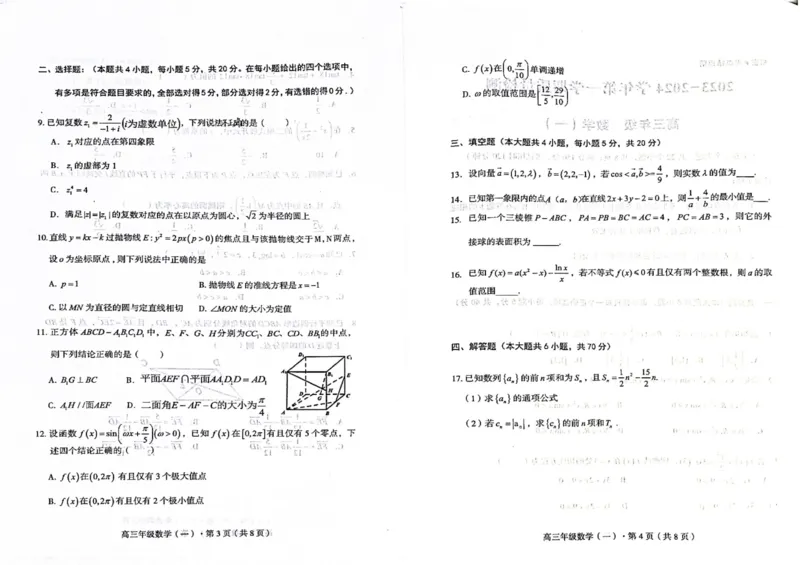 二、选择题：（本题共4小题，每小题5分，共20分。在每小题给出的四个选项中，
有多项是符合题目要求的,全部选对得5分,部分选对得2分,有选错的得0分.）
9.已知复数z₁=2/(-1+i)(i为虚数单位)，下列说法正确的是（ ）
A．z₁对应的点在第四象限
B．z₁的虚部为1
C．z₁⁴=4
D．满足|z|=|z₁|的复数对应的点在以原点为圆心，√2为半径的圆上
10.直线y=kx-k过抛物线E:y²=2px(p>0)的焦点且与该抛物线交于M,N两点，
设o为坐标原点,则下列说法中正确的是
A. p=1 B.抛物线E的准线方程是x=-1
C.以MN为直径的圆与定直线相切 D. ∠MON的大小为定值
11. 正方体ABCD-A₁B₁C₁D₁中，E、F、G、H分别为CC₁、BC、CD、BB₁的中点，
则下列结论正确的是（ ）
A. B₁G⊥BC B. 平面AEF∩平面AA₁D₁D=AD₁
C. A₁H//面AEF D. 二面角E-AF-C的大小为π/4
12. 设函数f(x)=sin(ωx+π/5)(ω>0)，已知f(x)在[0,2π]有且仅有5个零点，下
述四个结论正确的（ ）
A. f(x)在(0,2π)有且仅有3个极大值点
B. f(x)在(0,2π)有且仅有2个极小值点
高三年级数学(一)·第3页(共8页)
C. f(x)在(0,π/10)单调递增
D. ω的取值范围是[12/5,29/10)
三、填空题（本大题共4小题，每小题5分，共20分）
13. 设向量a=(1,2,λ)，b=(2,2,-1)，若cos<a,b>=4/9，则实数λ的值为____.
14. 已知第一象限内的点A（a，b)在直线2x+3y-2=0上，则1/a+4/b的最小值是___.
15. 已知一个三棱锥P-ABC，PA=PB=BC=AC=4，PC=AB=3，则它的外
接球的表面积为______.
16. 已知f(x)=a(x²-x)-lnx/x，若不等式f(x)≤0有且仅有两个整数根，则a的取
值范围_____.
四、解答题（本大题共6小题，共70分）
17.已知数列{aₙ}的前n项和为Sₙ，且Sₙ=1/2n²-15/2n.
(1)求{aₙ}的通项公式
(2)若cₙ=|aₙ|，求{cₙ}的前n项和Tₙ.
高三年级数学(一)·第4页(共8页)